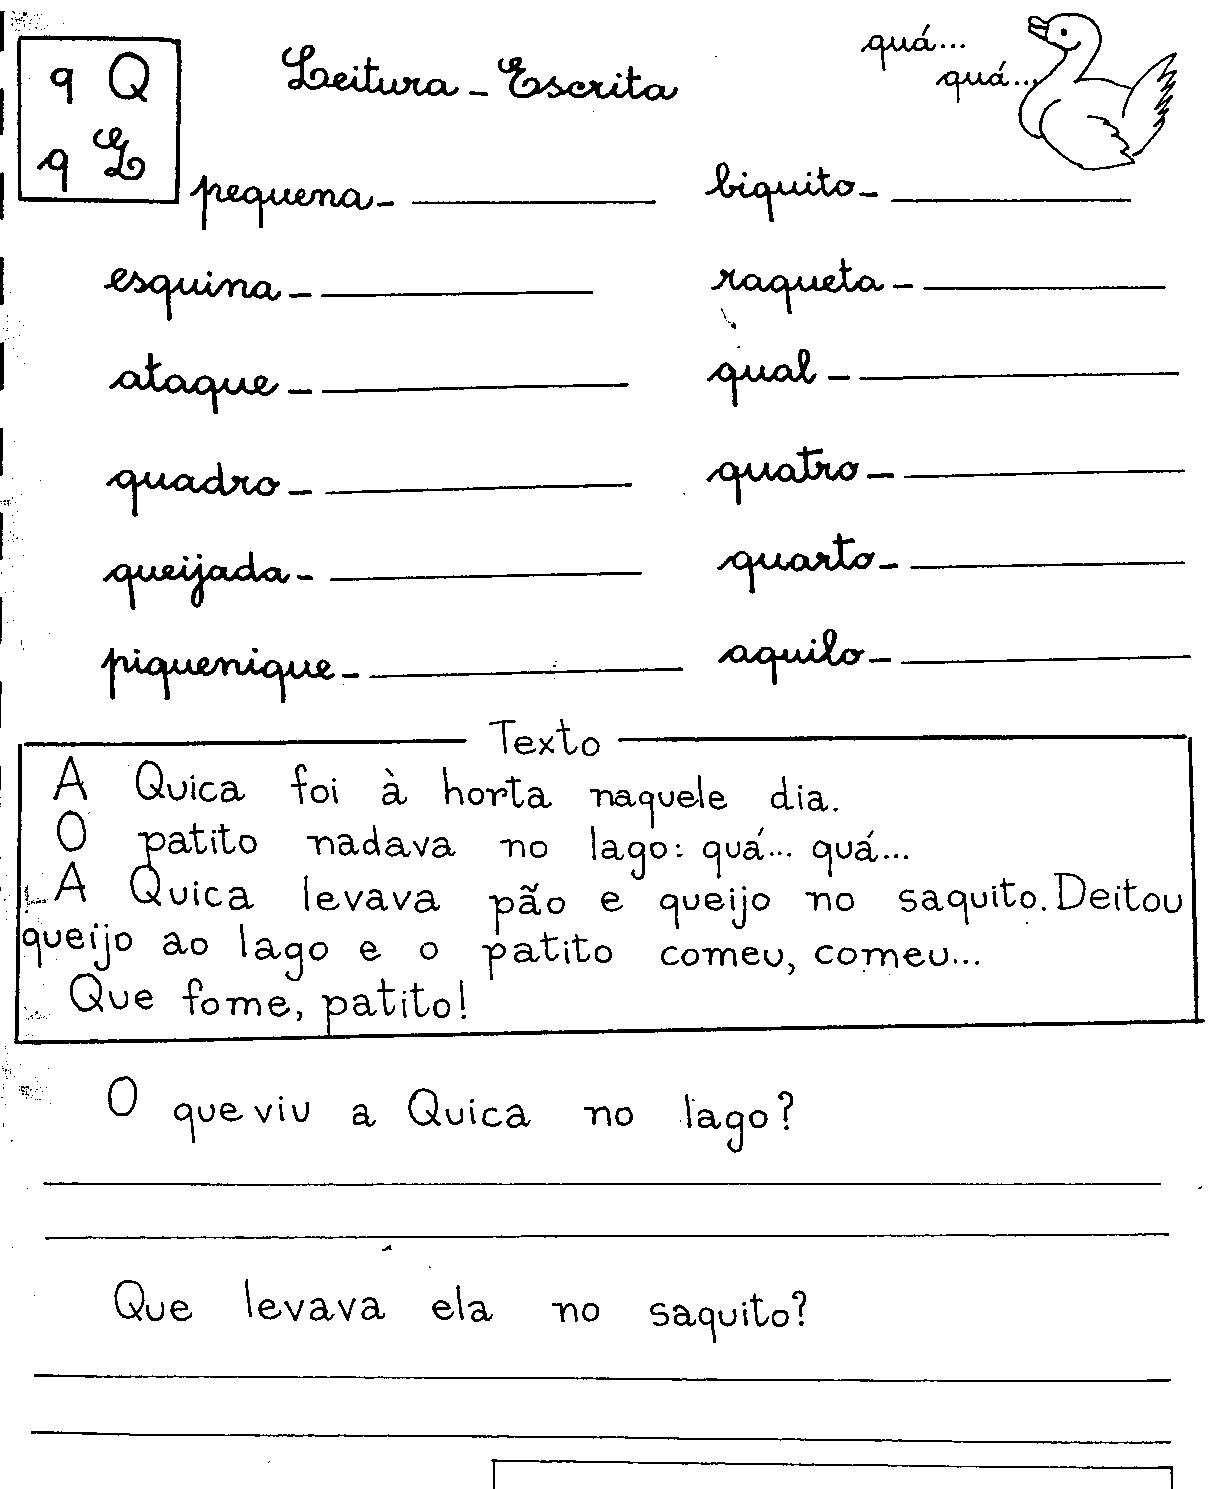 q Q
q Q
Leitura - Escrita
quá...
quá...
pequena -
biquito -
esquina -
raqueta -
ataque -
qual -
quadro -
quatro -
queijada -
quarto -
piquenique -
aquilo -
Texto
A Quica foi à horta naquele dia.
O patito nadava no lago: quá... quá...
A Quica levava pão e queijo no saquito. Deitou
queijo ao lago e o patito comeu, comeu...
Que fome, patito!
O que viu a Quica no lago?
Que levava ela no saquito?